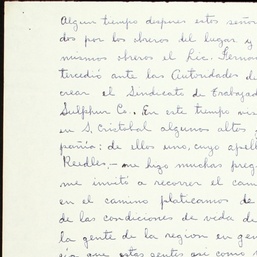 Algun tiempo despues estos señor
dos por los obreros del lugar y
mismos obreros el Lic. Fern
tercedió ante las Autoridades de
crear el Sindicato de Trabajad
Sulphur Co. En este tiempo
en S. Cristobal algunos altos
pañia; de ellos uno, cuyo apell
Reedles, me hizo muchas preg
me invitó a recorrer el cam
en el camino platicamos de
de las condiciones de vida de
la gente de la region en gen
que estas gentes asi como